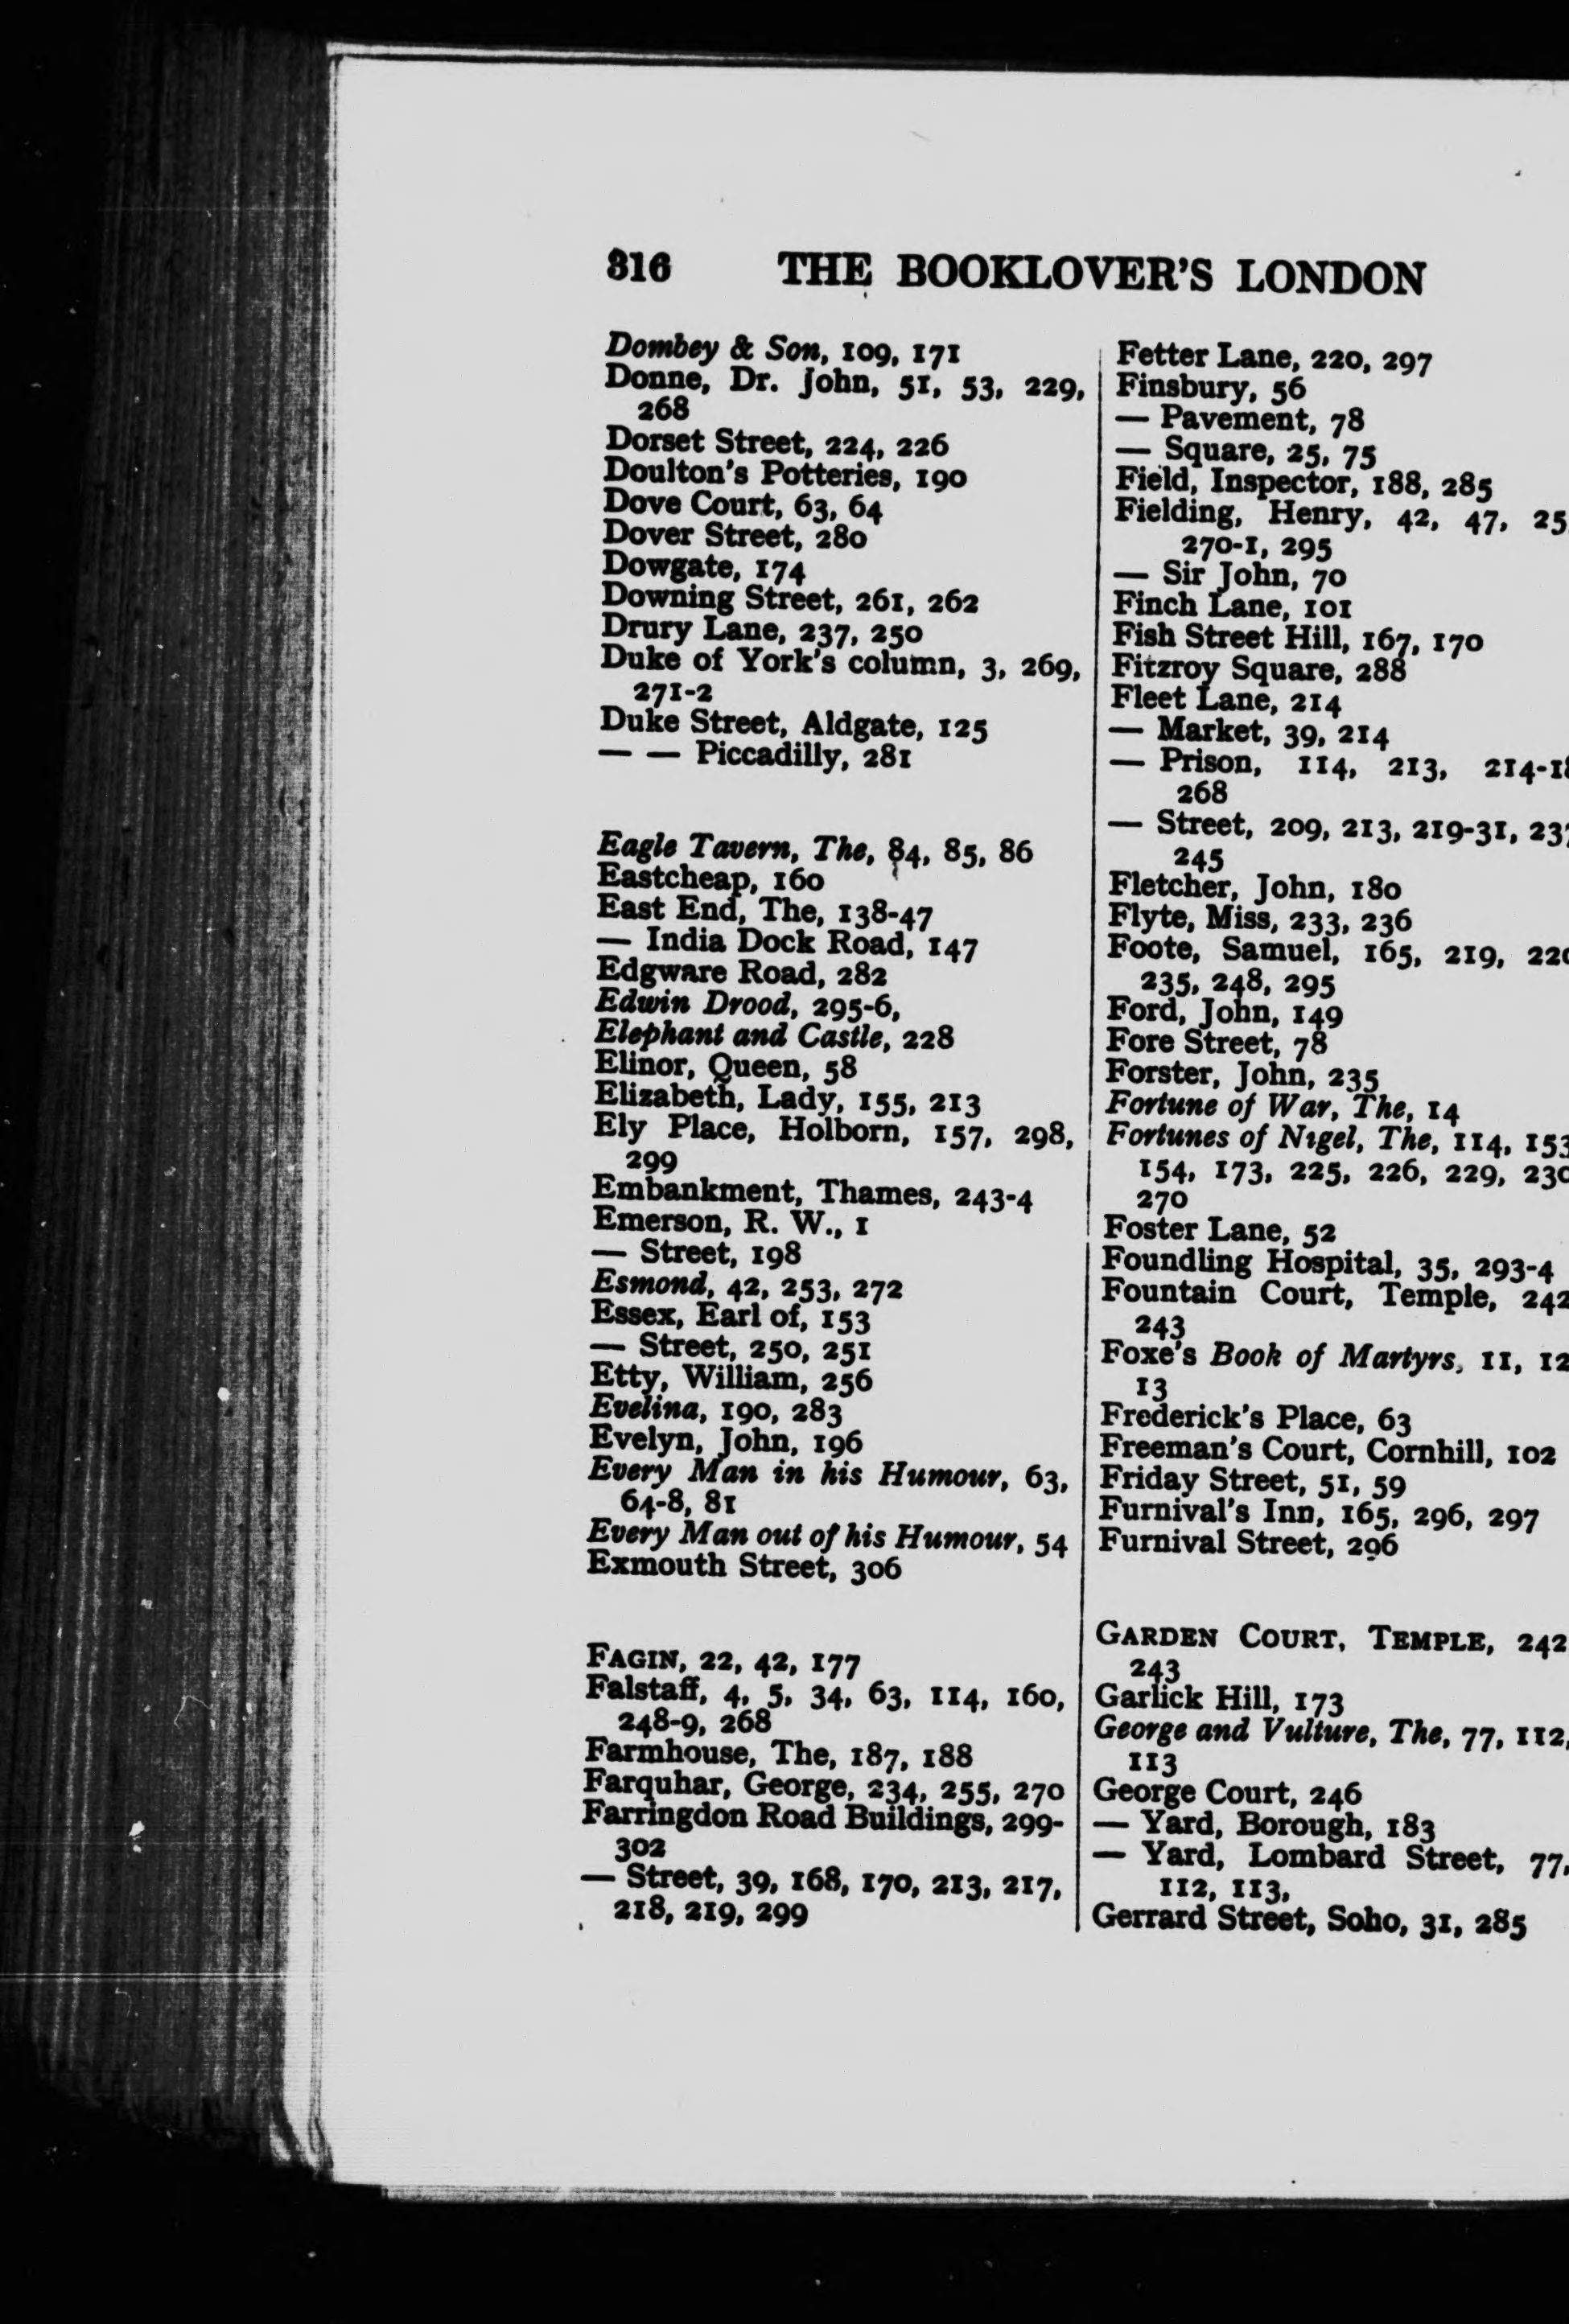 316 THE BOOKLOVER'S LONDON
Dombey & Son, 109, 171
Donne, Dr. John, 51, 53, 229,
268
Dorset Street, 224, 226
Doulton's Potteries, 190
Dove Court, 63, 64
Dover Street, 280
Dowgate, 174
Downing Street, 261, 262
Drury Lane, 237, 250
Duke of York's column, 3, 269,
271-2
Duke Street, Aldgate, 125
— — Piccadilly, 281
Eagle Tavern, The, 84, 85, 86
Eastcheap, 160
East End, The, 138-47
— India Dock Road, 147
Edgware Road, 282
Edwin Drood, 295-6,
Elephant and Castle, 228
Elinor, Queen, 58
Elizabeth, Lady, 155, 213
Ely Place, Holborn, 157, 298,
299
Embankment, Thames, 243-4
Emerson, R. W., 1
— Street, 198
Esmond, 42, 253, 272
Essex, Earl of, 153
— Street, 250, 251
Etty, William, 256
Evelina, 190, 283
Evelyn, John, 196
Every Man in his Humour, 63,
64-8, 81
Every Man out of his Humour, 54
Exmouth Street, 306
FAGIN, 22, 42, 177
Falstaff, 4, 5, 34, 63, 114, 160,
248-9, 268
Farmhouse, The, 187, 188
Farquhar, George, 234, 255, 270
Farringdon Road Buildings, 299-
302
— Street, 39, 168, 170, 213, 217,
218, 219, 299
Fetter Lane, 220, 297
Finsbury, 56
— Pavement, 78
— Square, 25, 75
Field, Inspector, 188, 285
Fielding, Henry, 42, 47,
270-1, 295
— Sir John, 70
Finch Lane, 101
Fish Street Hill, 167, 170
Fitzroy Square, 288
Fleet Lane, 214
— Market, 39, 214
— Prison, 114, 213,
268
— Street, 209, 213, 219-31,
245
Fletcher, John, 180
Flyte, Miss, 233, 236
Foote, Samuel, 165, 219,
235, 248, 295
Ford, John, 149
Fore Street, 78
Forster, John, 235
Fortune of War, The, 14
Fortunes of Nigel, The, 114, 153
154, 173, 225, 226, 229,
270
Foster Lane, 52
Foundling Hospital, 35, 293-4
Fountain Court, Temple, 242
243
Foxe's Book of Martyrs, 11, 12
13
Frederick's Place, 63
Freeman's Court, Cornhill, 102
Friday Street, 51, 59
Furnival's Inn, 165, 296, 297
Furnival Street, 296
GARDEN COURT, TEMPLE, 242
243
Garlick Hill, 173
George and Vulture, The, 77, 112,
113
George Court, 246
— Yard, Borough, 183
— Yard, Lombard Street, 77,
112, 113,
Gerrard Street, Soho, 31, 285